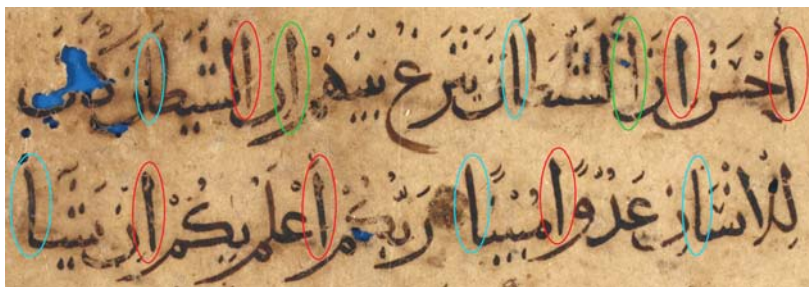 أَحْسَنُ إِنَّ الشَّيْطَانَ يَنْزَغُ بَيْنَهُمْ إِنَّ الشَّيْطَانَ
لِلْإِنْسَانِ عَدُوًّا مُبِينًا رَبُّكُمْ أَعْلَمُ بِكُمْ إِنْ يَشَأ